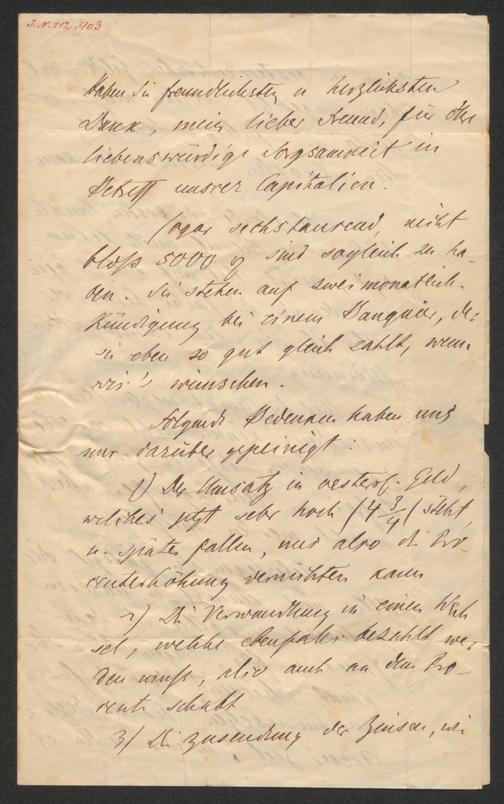 J.N. 112.903
Haben Sie freundlichsten u herzlichsten
Dank, mein lieber Freund, für Ihre
liebenswürdige Sorgsamkeit in
Betreff unsrer Capitalien.
Sogar sechstausend, nicht
bloß 5000 sind sogleich zu ha-
ben. Sie stehen auf zweimonatlich.
Kündigung bei einem Banquier, der
sie eben so gut gleich zahlt, wenn
wir's wünschen.
Folgende Bedenken haben uns
nur darüber gepeinigt:
1) Der Umsatz in oesterr. Geld,
welches jetzt sehr hoch (4 3/4) steht,
u. später fallen, uns also die Pro
centerhöhung vernichten kann
2) Die Verwandlung in einen Wech
sel, welche ebenfalls bezahlt wer
den muß, also auch an dem Pro-
cente schabt
3) Die Zusendung der Zinsen, wie